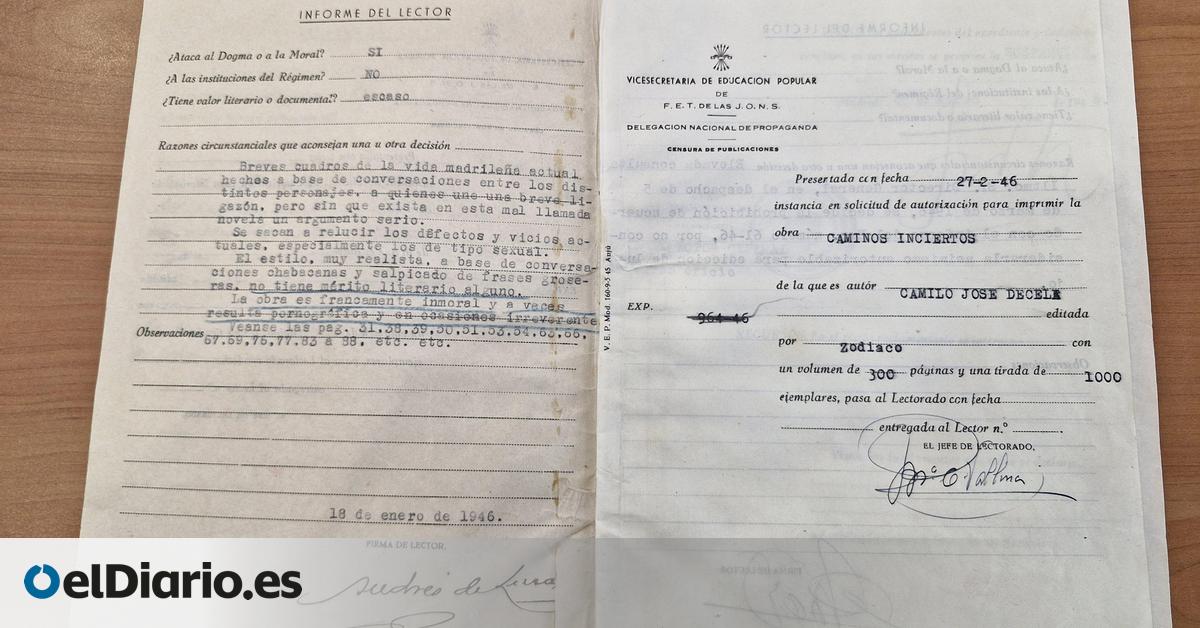 INFORME DEL LECTOR
¿Ataca al Dogma o a la Moral? SI
¿A las instituciones del Régimen? NO
¿Tiene valor literario o documental? escaso
Razones circunstanciales que aconsejan una u otra decisión
Breves cuadros de la vida madrileña actual
hechos a base de conversaciones entre los dis-
tintos personajes, a quienes une una breve li-
gazón, pero sin que exista en esta mal llamada
novela un argumento serio.
Se sacan a relucir los defectos y vicios ac-
tuales, especialmente los de tipo sexual.
El estilo, muy realista, a base de conversa-
ciones chabacanas y salpicado de frases grose-
ras, no tiene mérito literario alguno.
La obra es francamente inmoral y a veces
resulta pornográfica y en ocasiones irreverente
Observaciones Veanse las pag. 31,38,39,50,51,53,54,63,66,
67,69,76,77,83 a 88, etc. etc.
18 de enero de 1946.
FIRMA DE LECTOR.
Andrés de
VICESECRETARIA DE EDUCACION POPULAR
DE
F. E. T. DE LAS J. O. N. S.
DELEGACION NACIONAL DE PROPAGANDA
CENSURA DE PUBLICACIONES
Presentada con fecha 27-2-46
instancia en solicitud de autorización para imprimir la
obra CAMINOS INCIERTOS
de la que es autór CAMILO JOSE DECELE
EXP. 964-46 editada
por Zodiaco con
un volumen de 300 páginas y una tirada de 1000
ejemplares, pasa al Lectorado con fecha
entregada al Lector n.º
EL JEFE DE LECTORADO,
V. E. P. Mod. 160-9-5 45
elDiario.es